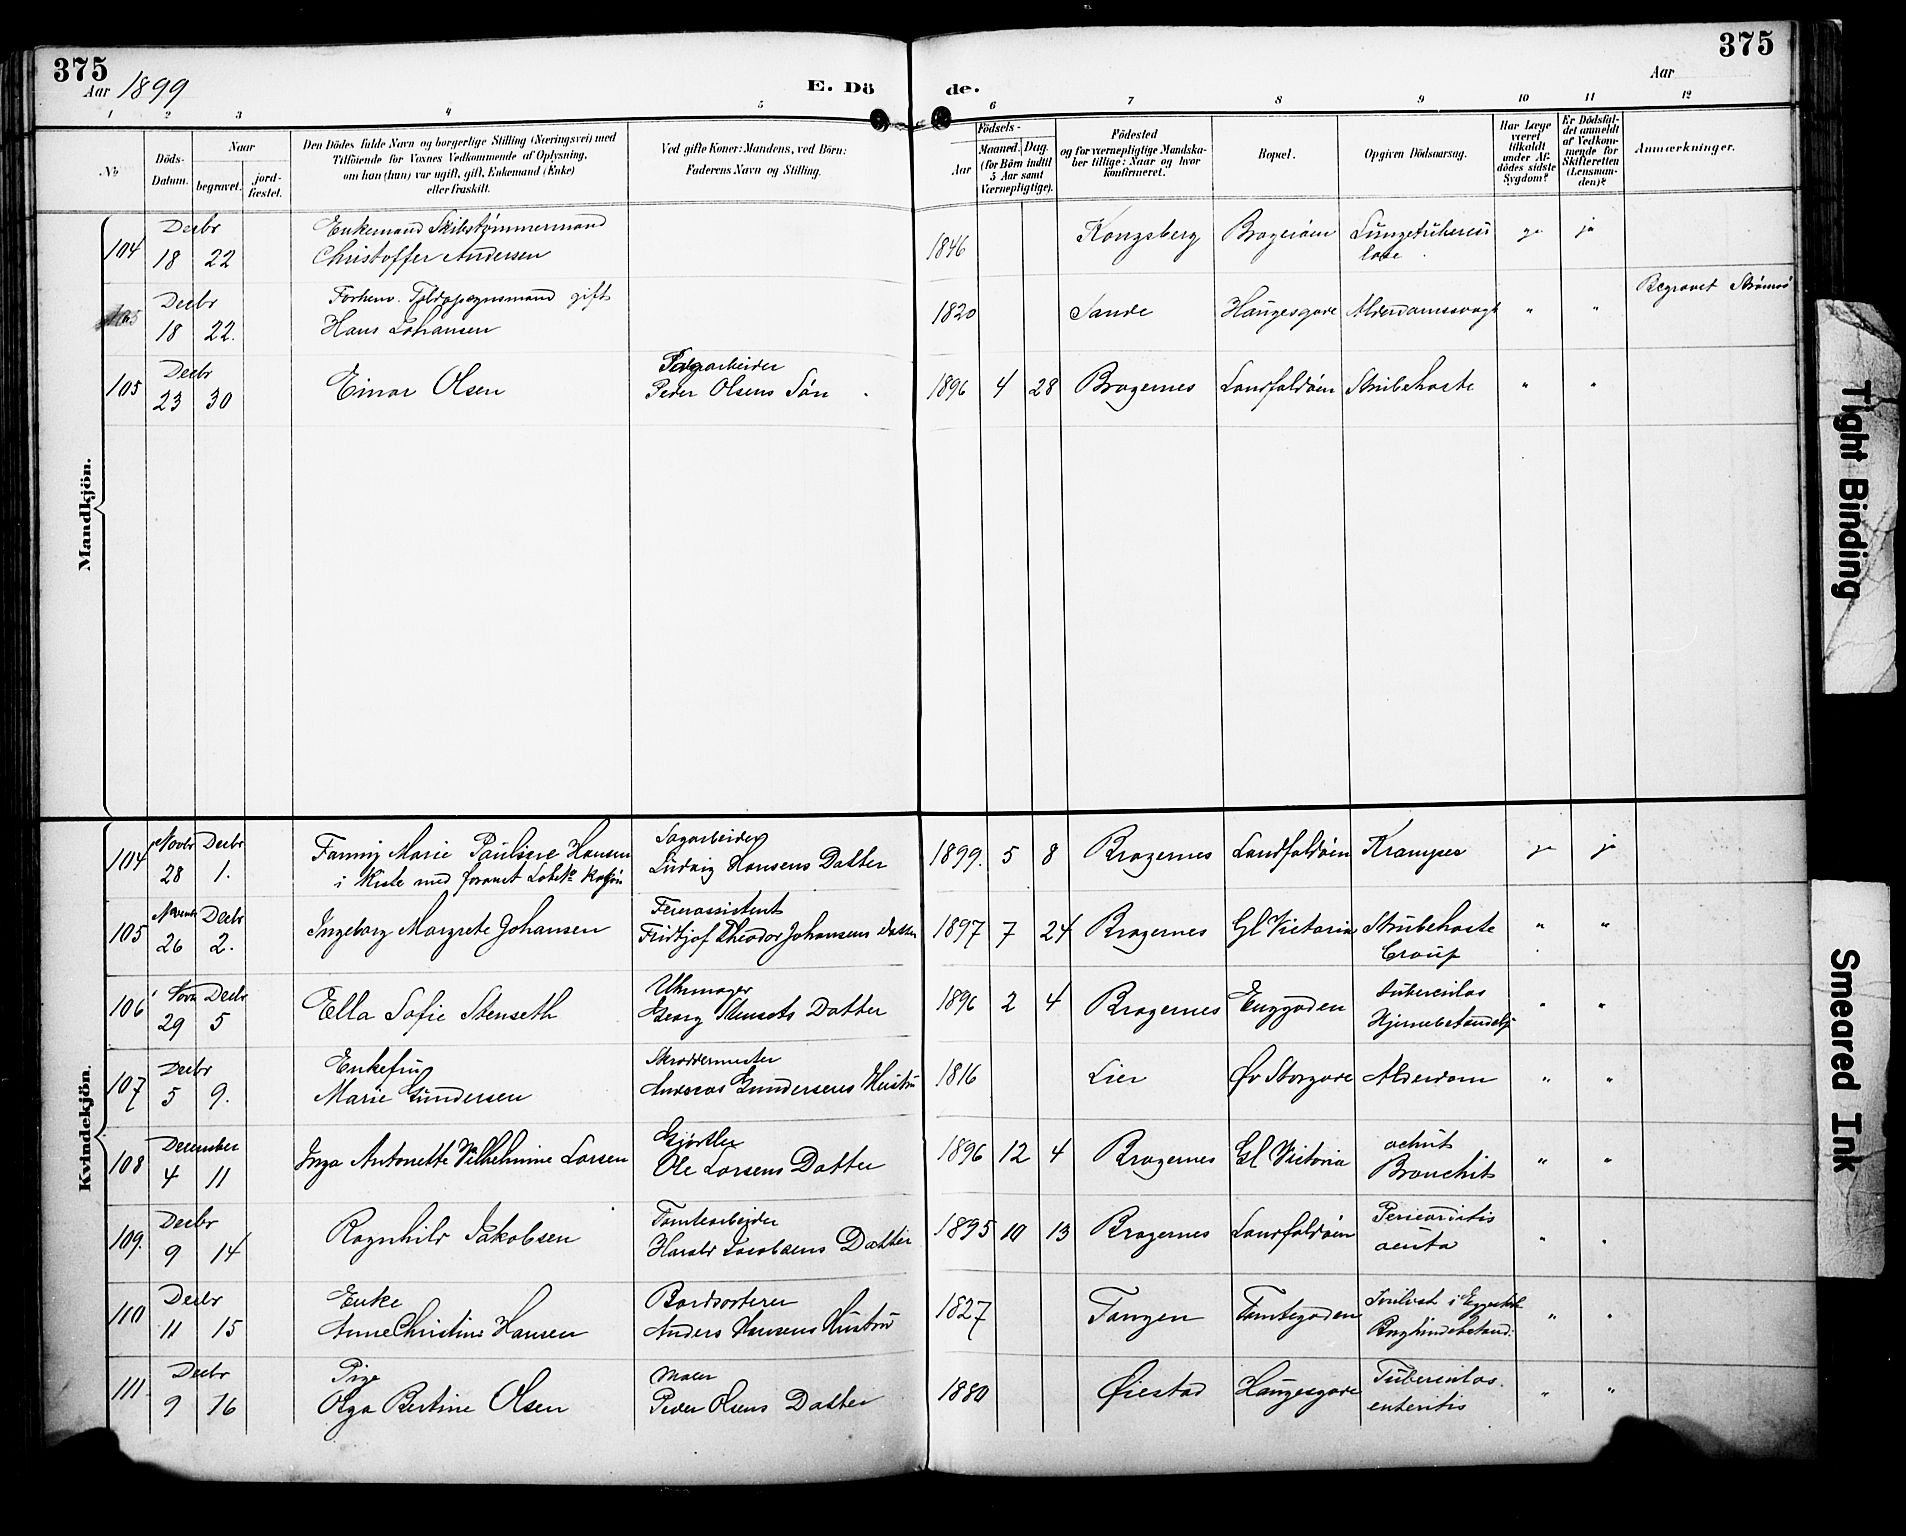 375
Aar 1899
E. Dö
de.
375
Aar
1 2 3 4 5 6 7 8 9 10 11 12
No
Döds-Datum.
Naar
begravet.
jord-fæstet.
Den Dödes fulde Navn og borgerlige Stilling (Næringsvei) med
Tilföiende for Voxnes Vedkommende af Oplysning,
om han (hun) var ugift, gift, Enkemand (Enke)
eller fraskilt.
Ved gifte Koner: Mandens, ved Börn:
Faderens Navn og Stilling.
Födsels-
Aar
Maaned. Dag.
(for Börn indtil
5 Aar samt
Værnepligtige).
Födested
og for værnepligtige Mandska-
ber tillige: Naar og hvor
konfirmeret.
Bopæl.
Opgiven Dödsaarsag.
Har Læge
været
tilkaldt
under Af-
dödes sidste
Sygdom?
Er Dödsfal-
det anmeldt
af Vedkom-
mende for
Skifteretten
(Lensman-
den)?
Anmærkninger.
Mandkjön.
Decbr Enkemand Skibstømmermand
104 18 22 Christoffer Andersen 1846 Kongsberg Bragerøen Lungetubercu
lose ja ja
Decbr Forhenv. gift
105 18 22. Hans Johansen 1820 Sande Haugesgade Alderdomssvagh " " Begravet Strømsø
Decbr Sagarbeider
105 23 30 Einar Olsen Peder Olsens Søn 1896 4 28 Bragernes Landfaldøen Strubehoste " "
Kvindekjön.
104 Novbr Decbr Fanny Marie Pauline Hansen Sagarbeider
28 1. i Kiste med Ludvig Hansens Datter 1899. 5 8 Bragernes Landfaldøen Kramper ja ja
105 Novemb Decbr Ingeborg Margrete Johansen
26 2. Fridtjof Theodor Johansens Datter 1897 7 24 Bragernes Gl Victoria Strubehoste
Croup " "
106 Novr Decbr Uhrmager
29 5 Ella Sofie Stenseth Georg Stenseths Datter 1896 2 4 Bragernes Enggaden Tuberculos
Hjernebetændelse " "
107 Decbr Enkefru Skræddermester
5 9. Marie Gundersen Andreas Gundersens Hustru 1816 Lier Øv Storgade Alderdom " "
108 December Gjørtler
4 11 Inga Antonette Vilhelmine Larsen Ole Larsens Datter 1896 12 4 Bragernes Gl Victoria achut
Bronchit " "
109. Decbr Tomtearbeider
9 14 Ragnhild Jakobsen Harald Jacobsens Datter 1895 10 13 Bragernes Landfaldøen Pericarditis
acuta " "
110 Decbr Enke Bordsorterer
11 15 Anne Christine Hansen Anders Hansens Hustru 1827 Tangen Tomtegaden
" "
111 Decbr Pige Maler
9 16 Olga Bertine Olsen Peder Olsens Datter 1880 Øiestad Haugesgade Tuberculos.
enteritis " "
Tight Binding
Smeared Ink